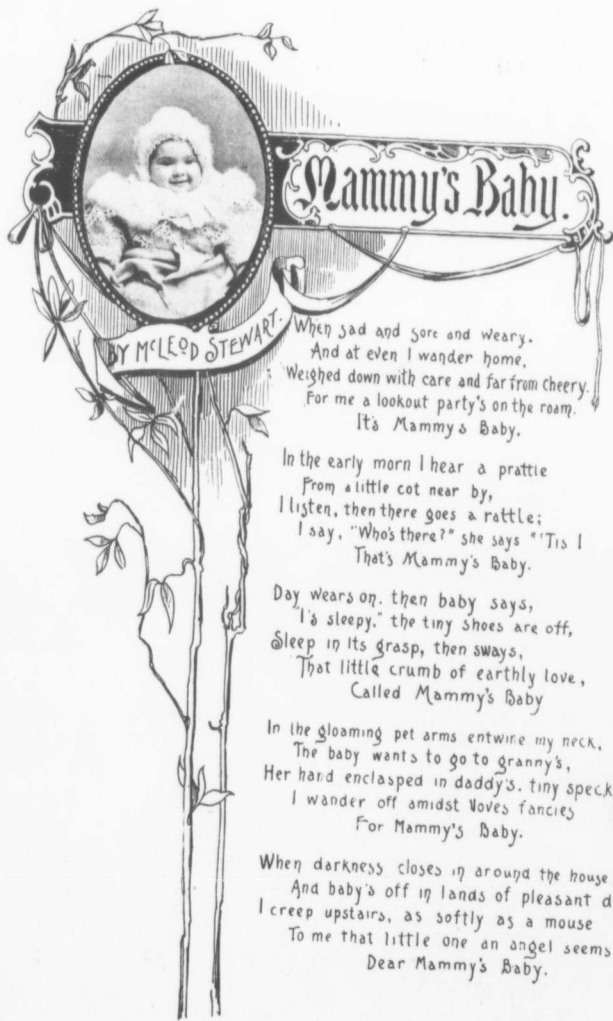 Mammy's Baby.
BY McLEOD STEWART.
When sad and sore and weary,
And at even I wander home,
Weighed down with care and far from cheery.
For me a lookout party's on the roam.
It's Mammy's Baby.
In the early morn I hear a prattle
From a little cot near by,
I listen, then there goes a rattle;
I say, "Who's there?" she says "'Tis I
That's Mammy's Baby.
Day wears on. then baby says,
"I's sleepy," the tiny shoes are off,
Sleep in its grasp, then sways,
That little crumb of earthly love,
Called Mammy's Baby
In the gloaming pet arms entwine my neck,
The baby wants to go to granny's,
Her hand enclasped in daddy's. tiny speck
I wander off amidst Voves fancies
For Mammy's Baby.
When darkness closes in around the house
And baby's off in lands of pleasant d
I creep upstairs, as softly as a mouse
To me that little one an angel seems
Dear Mammy's Baby.